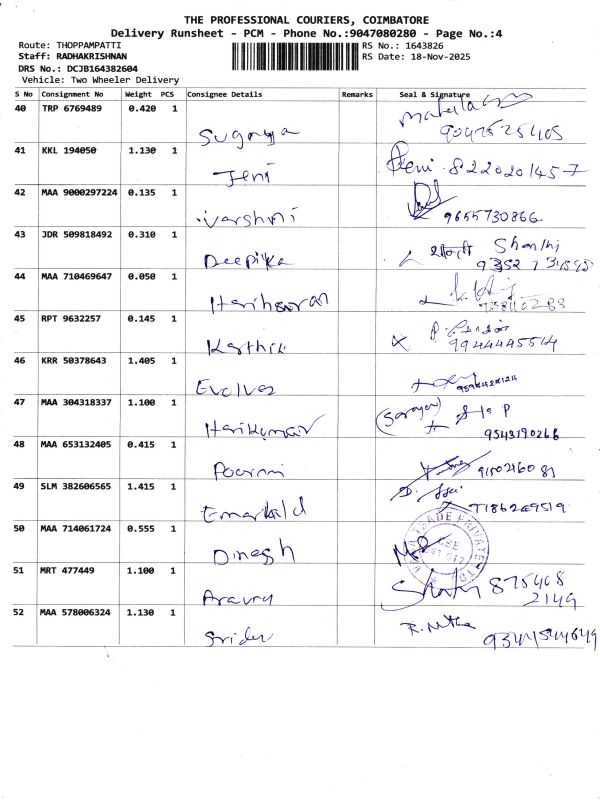 THE PROFESSIONAL COURIERS, COIMBATORE
Delivery Runsheet - PCM - Phone No.:9047080280 - Page No.:4
Route: THOPPAMPATTI RS No.: 1643826
Staff: RADHAKRISHNAN RS Date: 18-Nov-2025
DRS No.: DCJB164382604
Vehicle: Two Wheeler Delivery
S No Consignment No Weight PCS Consignee Details Remarks Seal & Signature
40 TRP 6769489 0.420 1
Suganya 9047525405
41 KKL 194050 1.130 1
Jeni Jeni 8220201457
42 MAA 9000297224 0.135 1
Varshni 9655730866
43 JDR 509818492 0.310 1
Deepika Shanthi
44 MAA 710469647 0.050 1
Hariharan
45 RPT 9632257 0.145 1
Karthik 9944445514
46 KRR 50378643 1.405 1
Evolves
47 MAA 304318337 1.100 1
Harikumar 9543190266
48 MAA 653132405 0.415 1
Poorni
49 SLM 382606565 1.415 1
Emarald
50 MAA 714061724 0.555 1
Dinesh
51 MRT 477449 1.100 1
Aravry 875408
2149
52 MAA 578006324 1.130 1
Srider